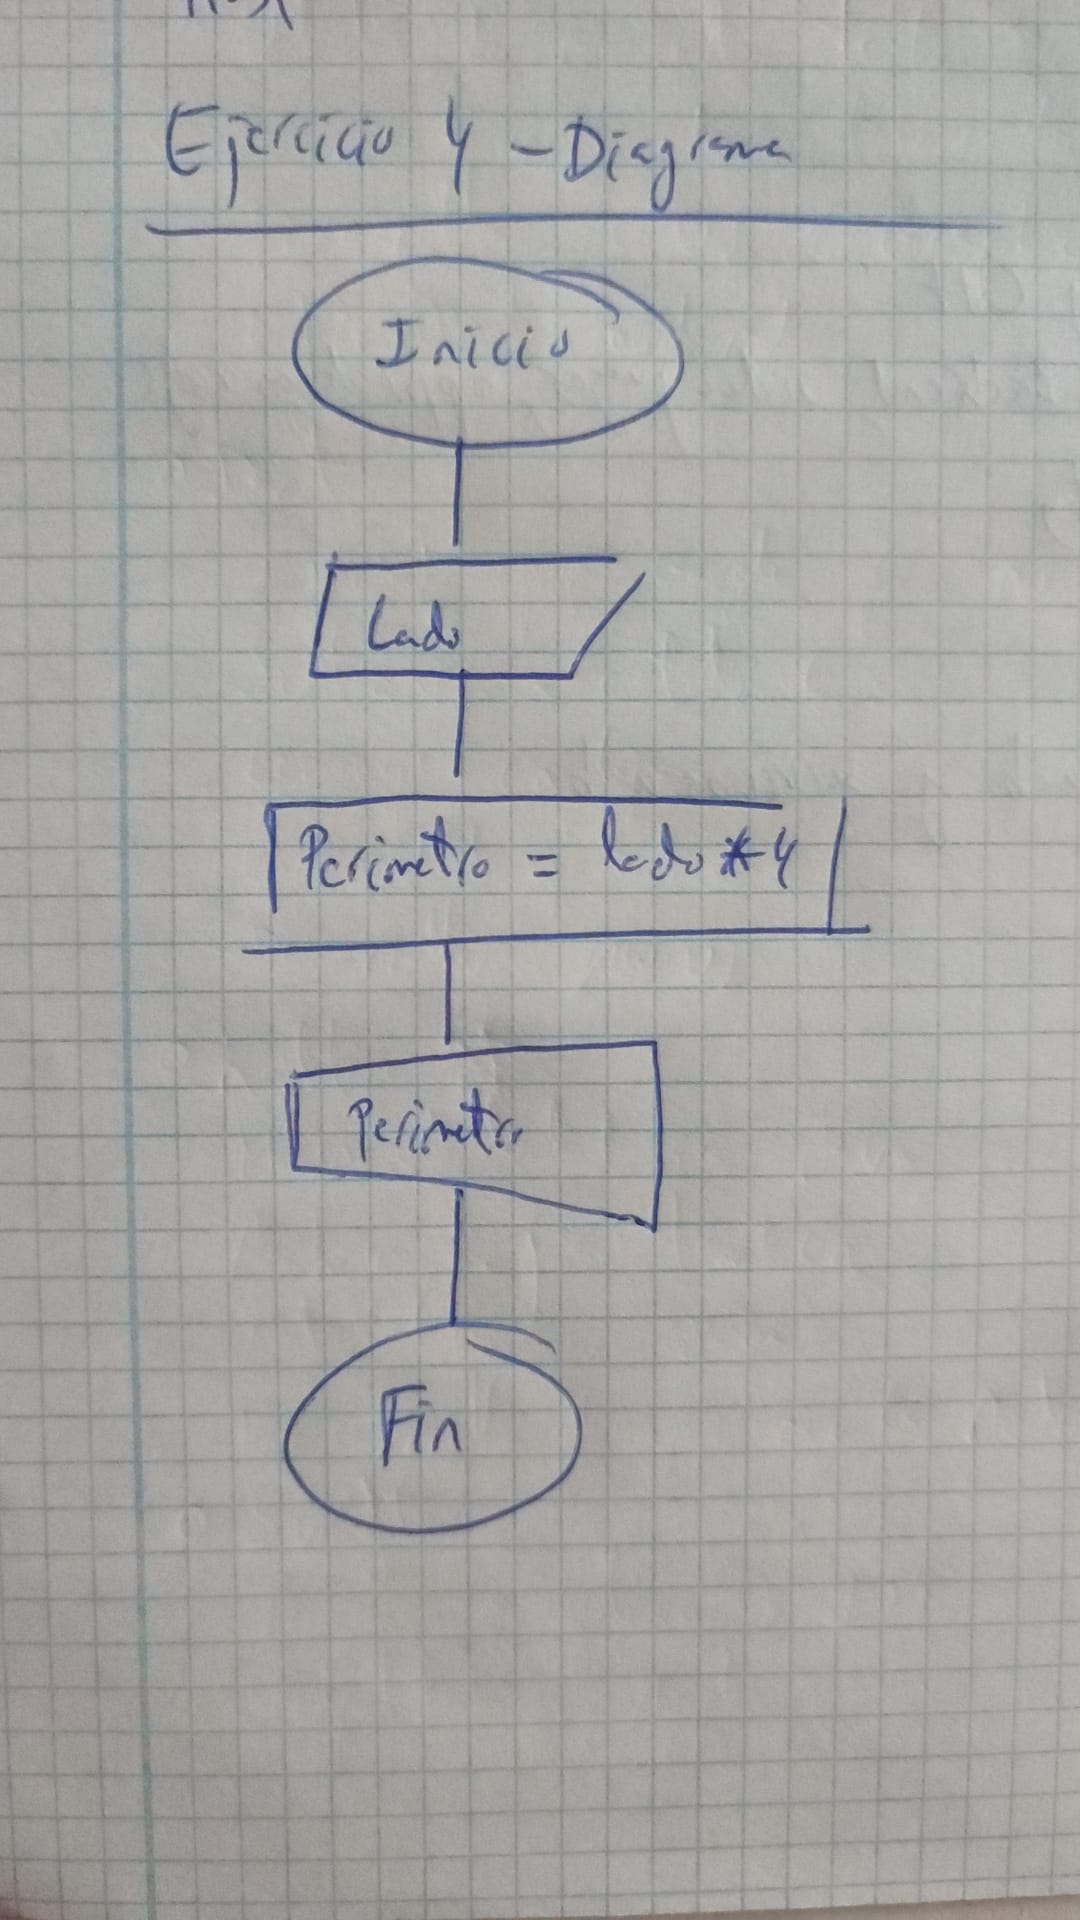 Ejercicio 4 - Diagrama
Inicio
Lado
Perimetro = lado * 4
Perimetro
Fin